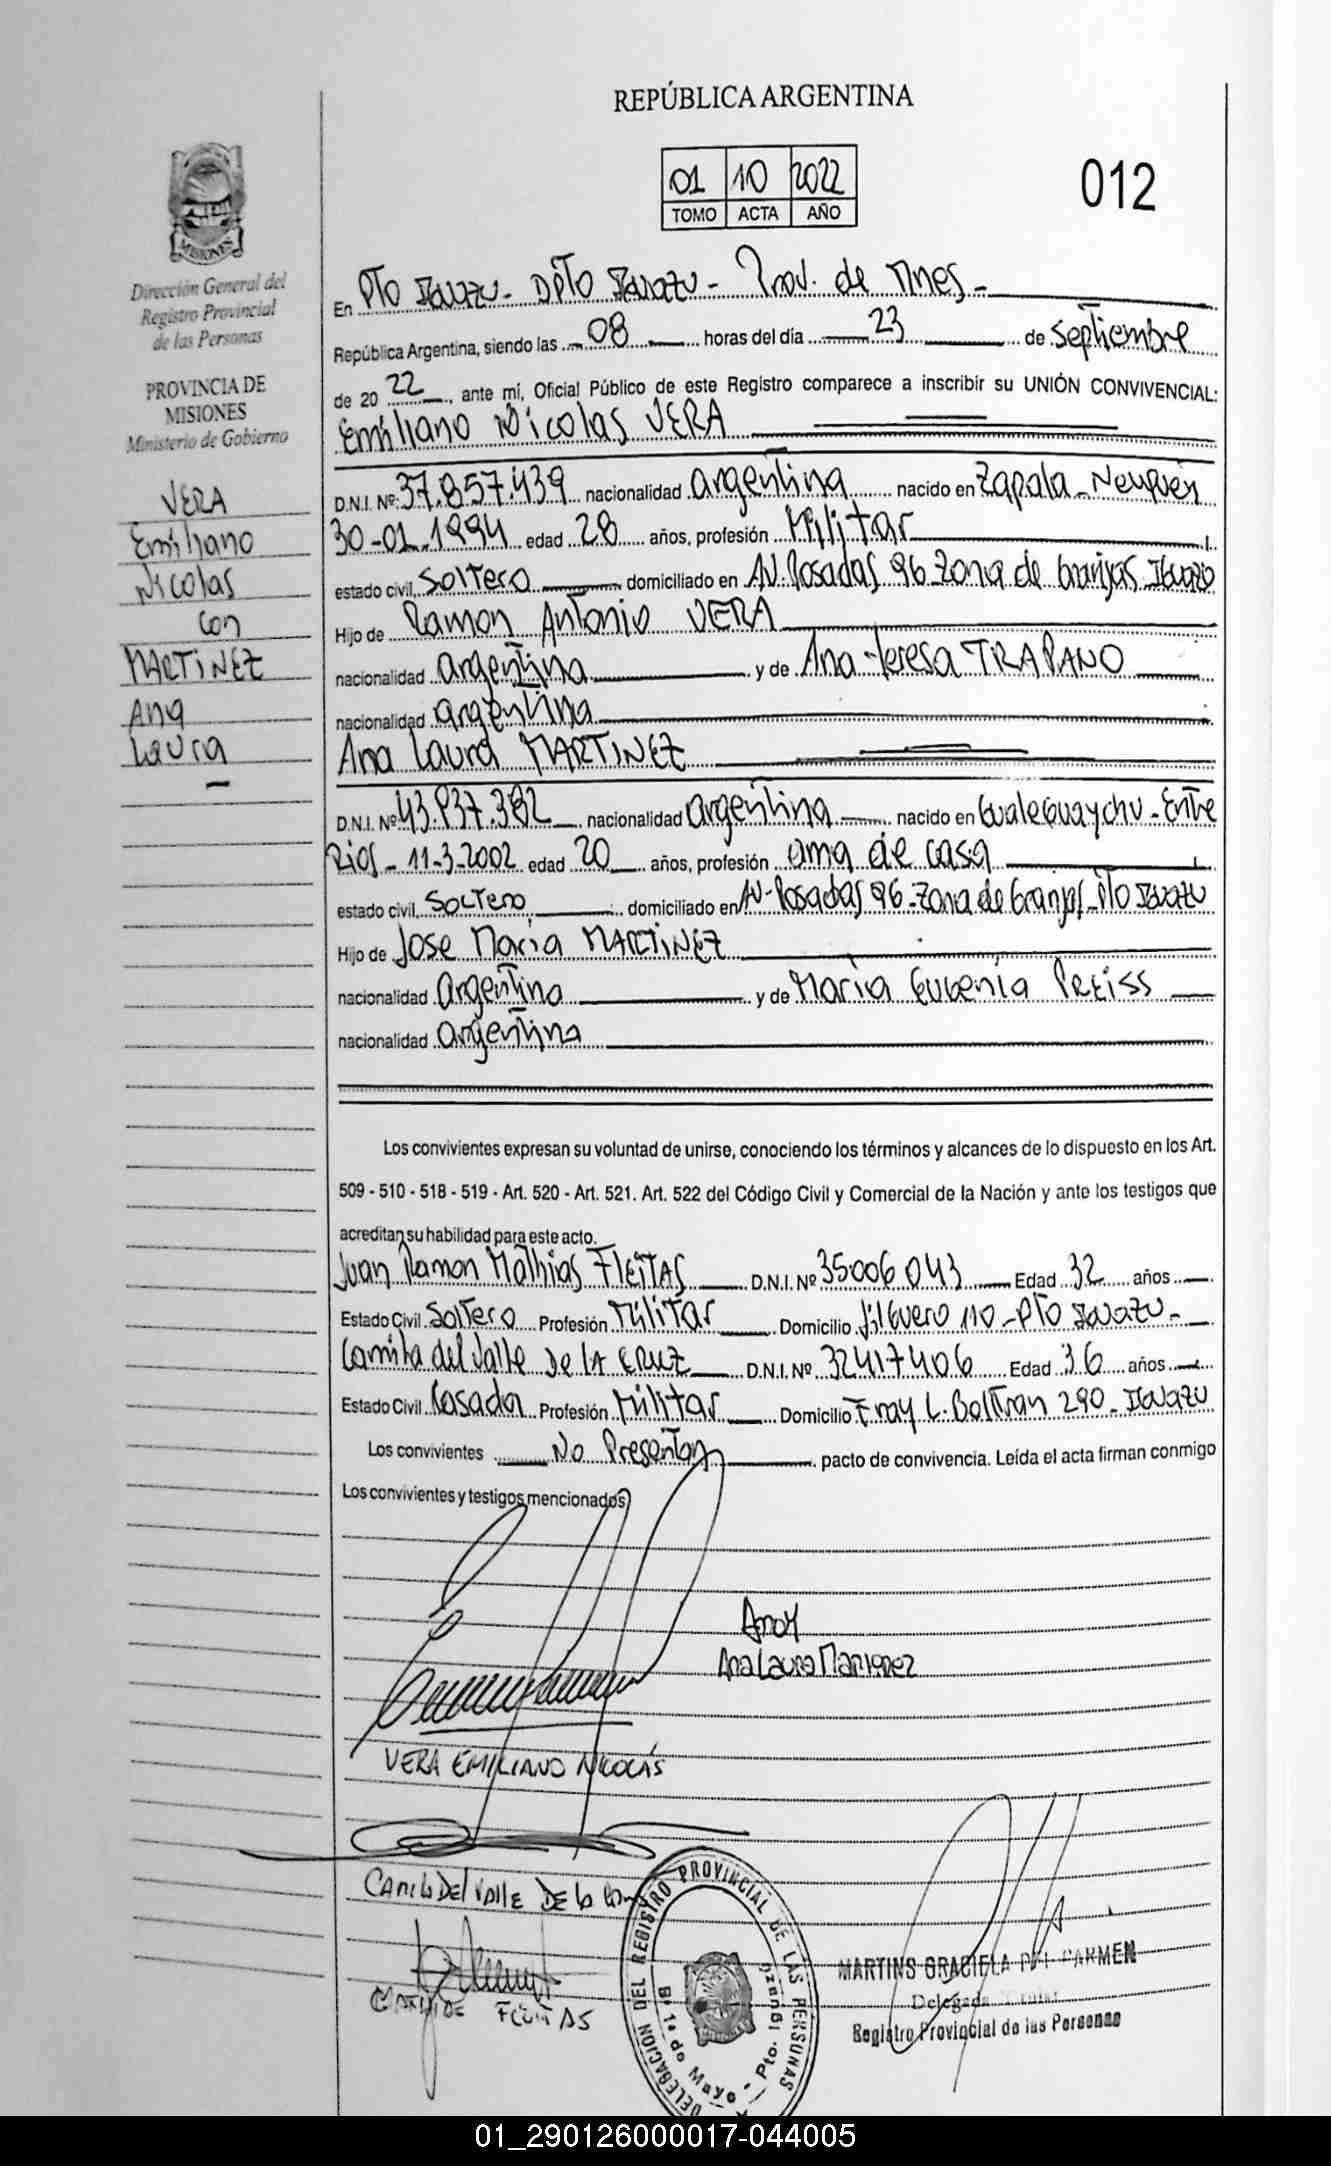 REPÚBLICA ARGENTINA
01 10 2022
TOMO ACTA AÑO
012
MISIONES
Dirección General del
Registro Provincial
de las Personas
PROVINCIA DE
MISIONES
Ministerio de Gobierno
VERA
Emiliano
Nicolas
con
MARTINEZ
Ana
Laura
En Pto Iguazu - Dpto Iguazu - Prov. de Mnes -
República Argentina, siendo las 08 horas del día 23 de septiembre
de 20 22, ante mí, Oficial Público de este Registro comparece a inscribir su UNIÓN CONVIVENCIAL:
Emiliano Nicolas VERA
D.N.I. Nº 37.857.439 nacionalidad argentina nacido en Zapala - Neuquen
30-01-1994 edad 28 años, profesión Militar
estado civil, Soltero domiciliado en AV. Posadas 96 Zona de Granjas Iguazu
Hijo de Ramon Antonio VERA
nacionalidad argentina y de Ana Teresa TRAPANO
nacionalidad argentina
Ana Laura MARTINEZ
D.N.I. Nº 43.937.382 nacionalidad argentina nacido en Gualeguaychu - Entre
Rios - 11-3-2002 edad 20 años, profesión ama de casa
estado civil, Soltero domiciliado en AV. Posadas 96 - Zona de Granjas - Pto Iguazu
Hijo de Jose Maria MARTINEZ
nacionalidad Argentina y de Maria Eugenia PREISS
nacionalidad argentina
Los convivientes expresan su voluntad de unirse, conociendo los términos y alcances de lo dispuesto en los Art.
509 - 510 - 518 - 519 - Art. 520 - Art. 521. Art. 522 del Código Civil y Comercial de la Nación y ante los testigos que
acreditan su habilidad para este acto.
Juan Ramon Mathias FLEITAS D.N.I. Nº 35006043 Edad 32 años
Estado Civil Soltero Profesión Militar Domicilio Jilguero 110 - Pto Iguazu -
Camila del Valle DE LA CRUZ D.N.I. Nº 32417406 Edad 36 años
Estado Civil Casada Profesión Militar Domicilio Fray L. Beltran 290 - Iguazu
Los convivientes No Presentan pacto de convivencia. Leída el acta firman conmigo
Los convivientes y testigos mencionados
Ana Laura Martinez
VERA EMILIANO NICOLÁS
CAMILA DEL VALLE DE LA
FLEITAS
DELEGACION DEL REGISTRO PROVINCIAL DE LAS PERSONAS
Bº 1º de Mayo - Pto. Iguazú
MARTINS GRACIELA DEL CARMEN
Delegada Titular
Registro Provincial de las Personas
01_290126000017-044005